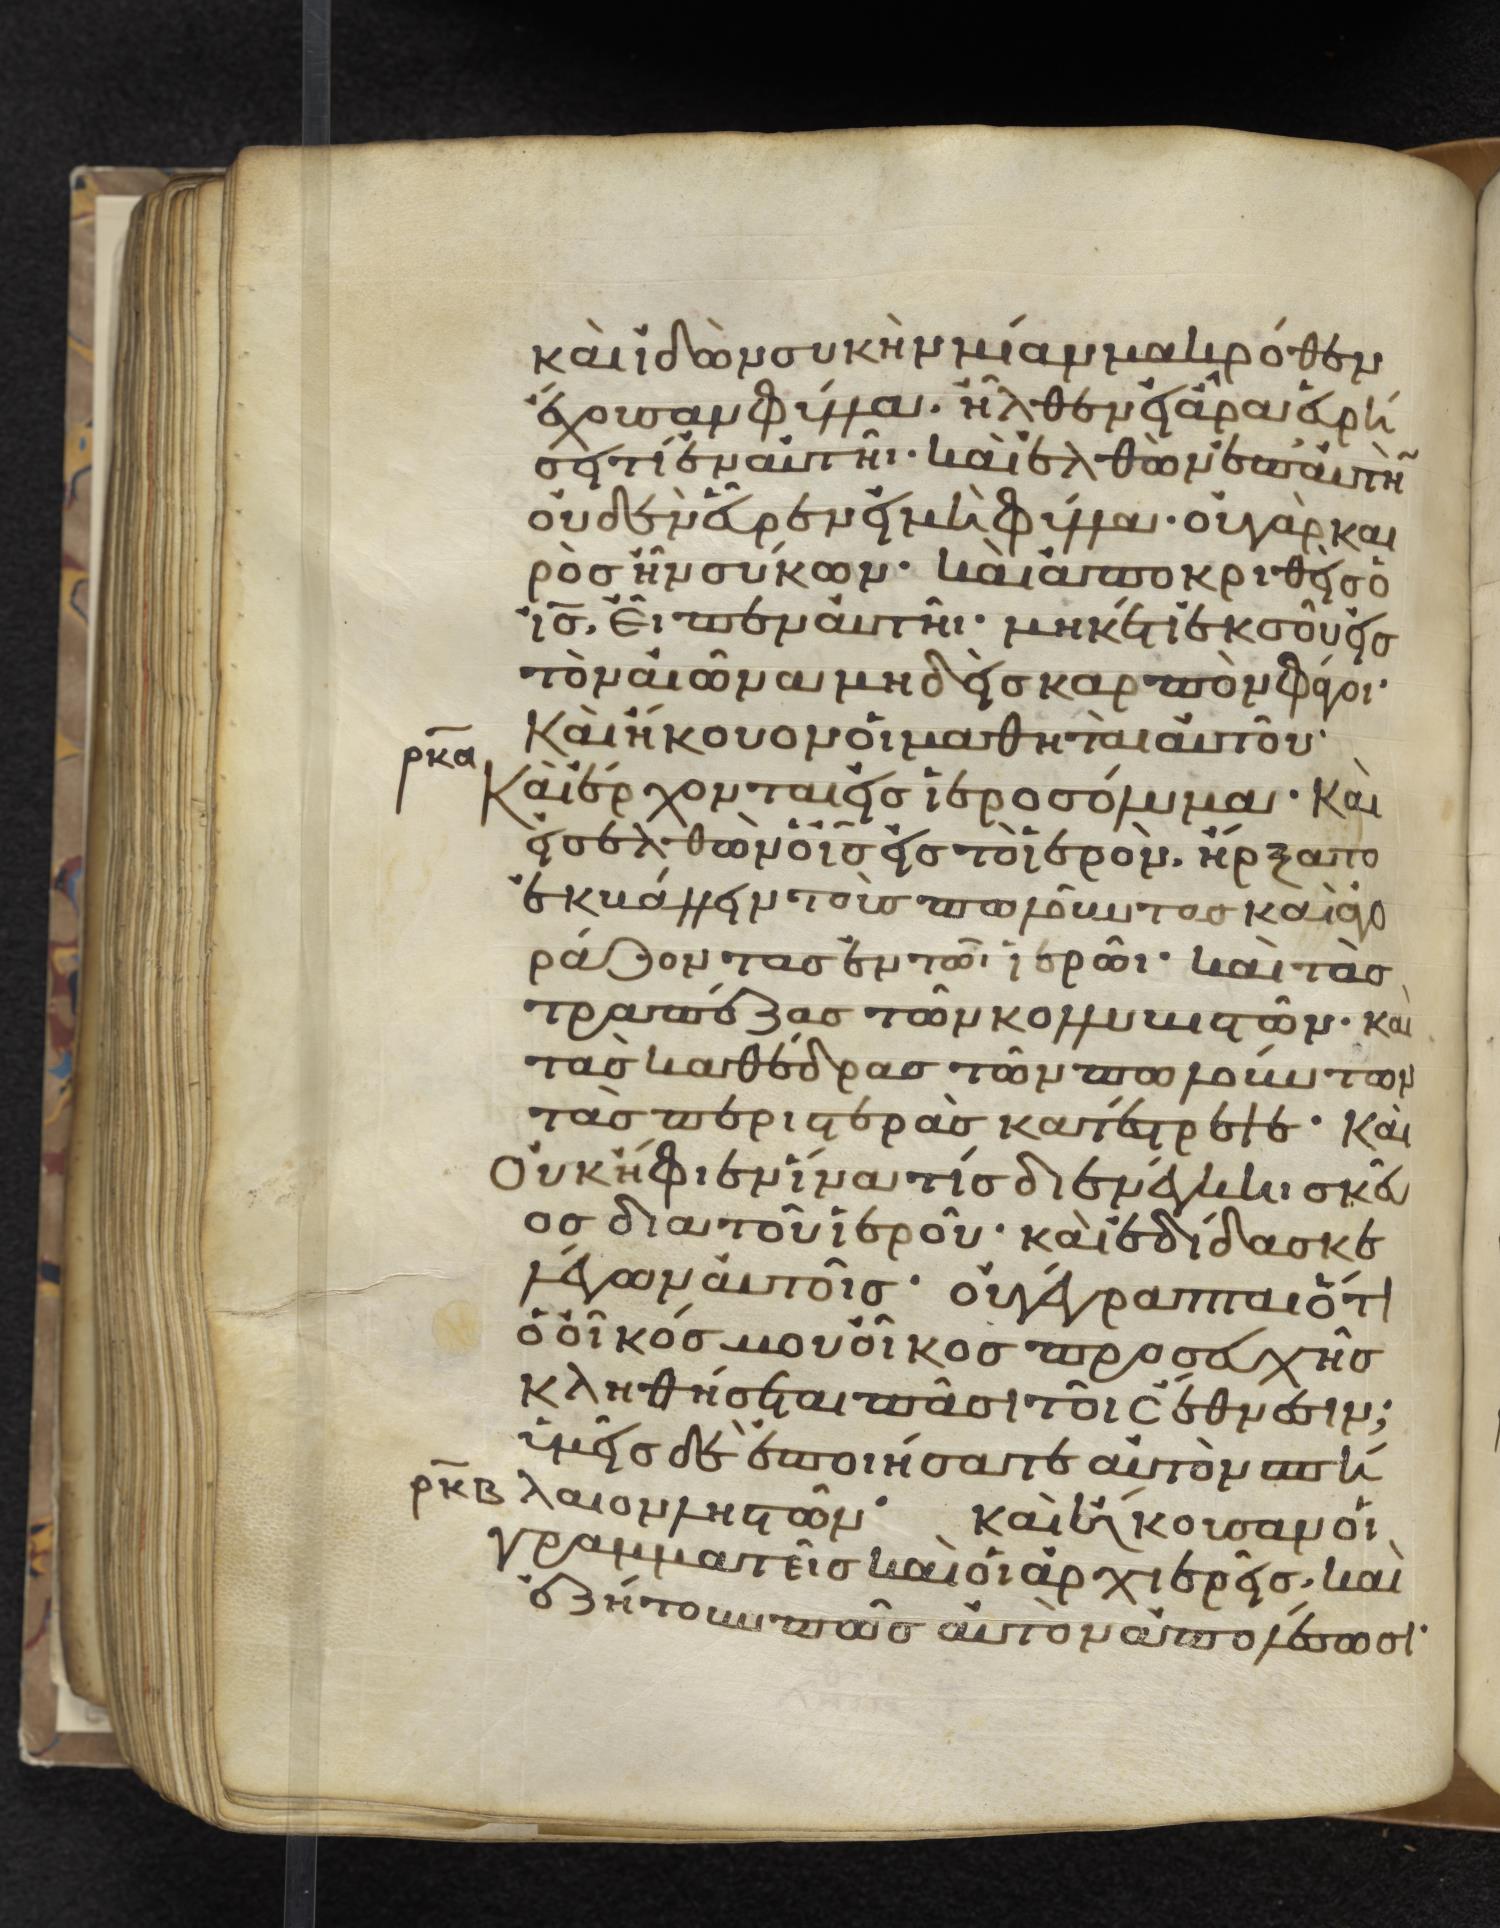 καὶ ἰδὼν συκὴν μίαν μακρόθεν
ἔχουσαν φύλλα. ἦλθεν εἰ ἄρα εὑρή
σει τί ἐν αὐτῆι· καὶ ἐλθὼν ἐπ' αὐτὴν
οὐδὲν εὗρεν εἰ μὴ φύλλα· οὐ γὰρ και
ρὸσ ἦν σύκων· καὶ ἀποκριθεὶσ ὁ
ἰσ̅, εἶπεν αὐτῆι· μηκέτι ἐκ σοῦ εἰσ
τὸν αἰῶνα μηδεὶσ καρπὸν φάγοι·
Καὶ ἤκουον οἱ μαθηταὶ αὐτοῦ·
ρκ̅α Καὶ ἔρχονται εἰσ ἱεροσόλυμα· Καὶ
εἰσελθὼν ὁ ἰσ̅ εἰσ τὸ ἱερὸν. ἤρξατο
ἐκβάλλειν τοὺσ πωλοῦντασ καὶ ἀγο
ράζοντασ ἐν τῶι ἱερῶι· καὶ τὰσ
τραπέζασ τῶν κολλυβιστῶν· καὶ
τὰσ καθέδρασ τῶν πωλούντων
τὰσ περιστερὰσ κατέστρεψε· Καὶ
Οὐκ ἤφιεν ἵνα τίσ διενέγκηι σκεῦ
οσ δια τοῦ ἱεροῦ· καὶ ἐδίδασκε
λέγων αὐτοῖσ· οὐ γέγραπται ὅτι
ὁ οἶκόσ μου οἶκοσ προσευχῆσ
κληθήσεται πᾶσι τοῖσ ἔθνεσιν;
ὑμεῖσ δὲ ἐποιήσατε αὐτὸν σπή
ρκ̅β λαιον ληστῶν· καὶ ἤκουσαν οἱ
γραμματεῖσ καὶ οἱ ἀρχιερεῖσ, καὶ
ἐζήτουν πῶσ αὐτὸν ἀπολέσωσι·